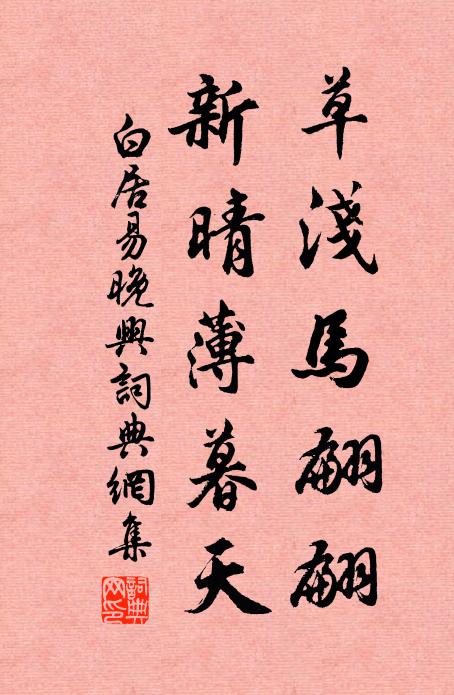 草淺馬翩翩
新晴薄暮天
白居易晚興詞典網集
詞典網印